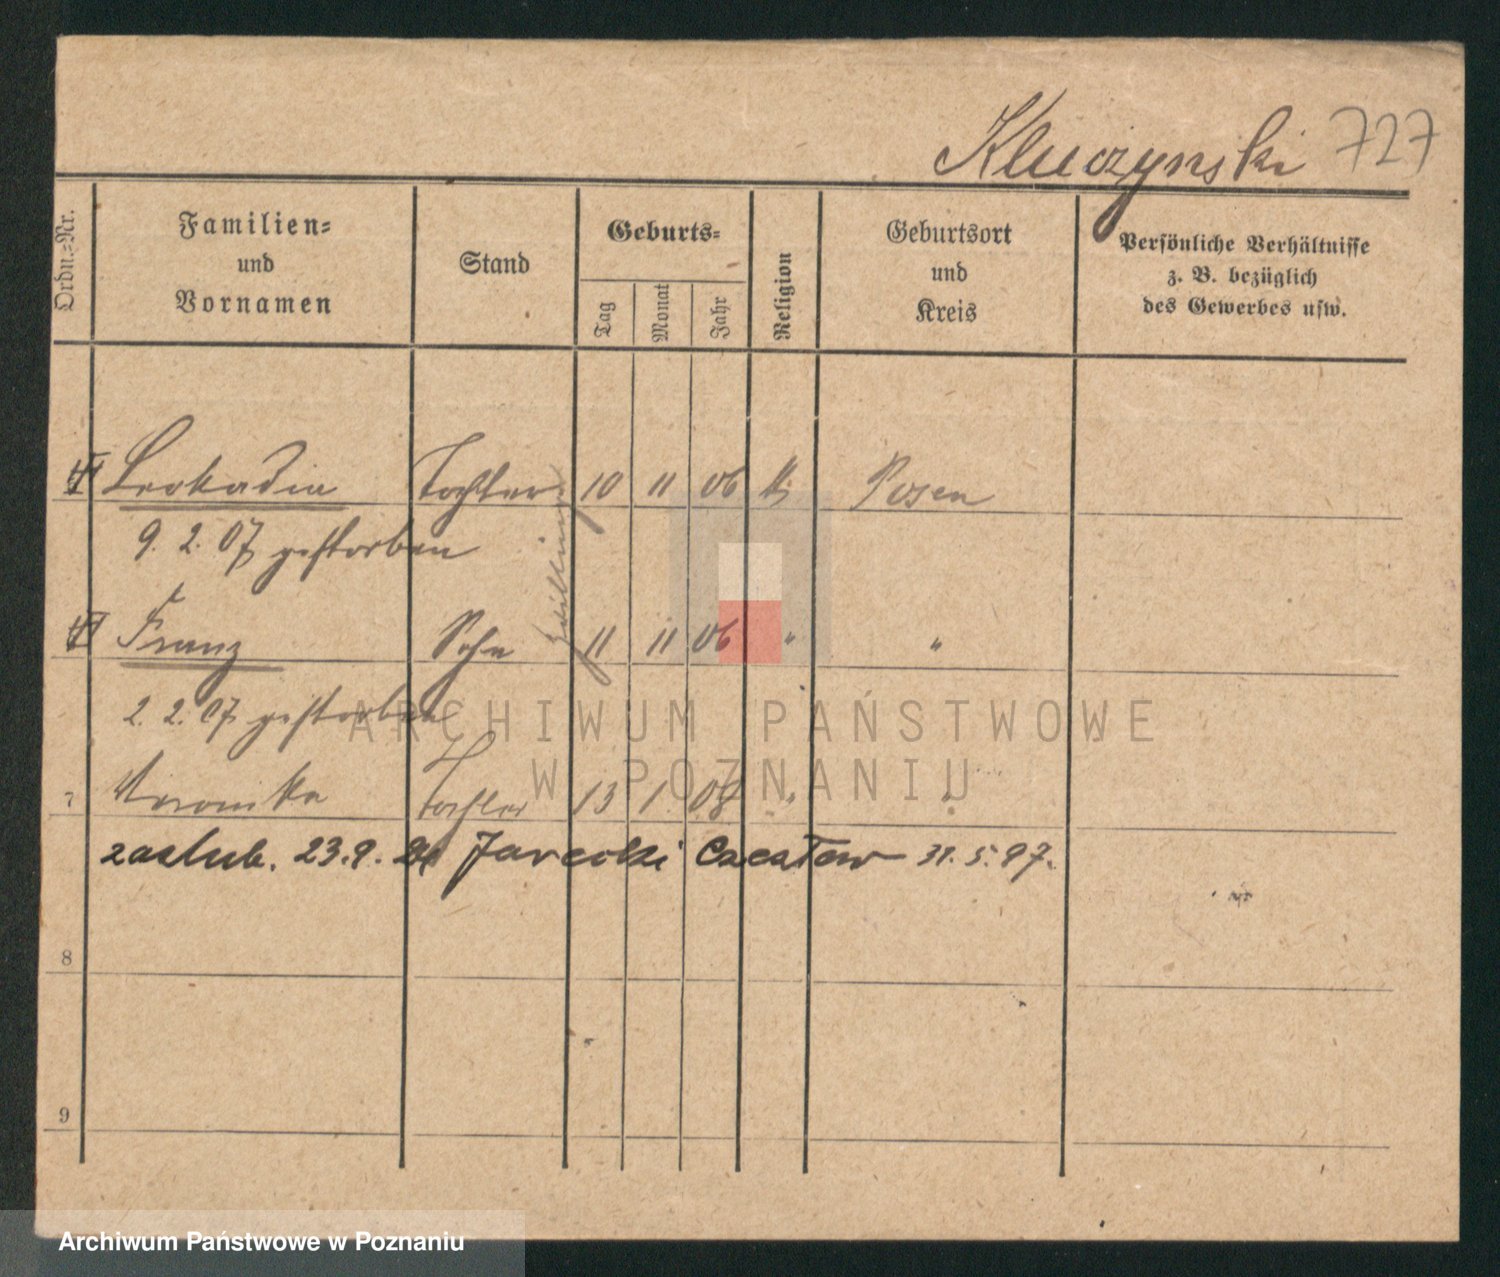 Kluczynski 727
Ordn.=Nr.
Familien=
und
Vornamen
Stand
Geburts=
Tag
Monat
Jahr
Religion
Geburtsort
und
Kreis
Persönliche Verhältnisse
z. B. bezüglich
des Gewerbes usw.
Leokadia Tochter 10 11 06 k. Posen
9. 2. 07 gestorben
Zwillinge
Franz Sohn 11 11 06 " "
2. 2. 07 gestorben
7 Veronika Tochter 13 1 08 " "
zaślub. 23.9. Jarecki Czesław 31.5.97.
8
9
ARCHIWUM PAŃSTWOWE
W POZNANIU
Archiwum Państwowe w Poznaniu